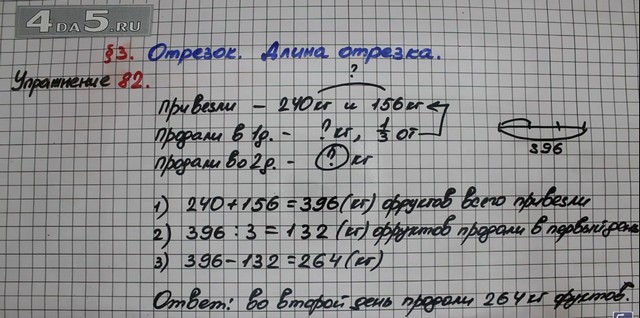 4DA5.RU
§3. Отрезок. Длина отрезка.
Упражнение 82.
?
привезли - 240 кг и 156 кг
продали в 1д. - ? кг, 1/3 от
продали во 2д. - ? кг
396
1) 240 + 156 = 396 (кг) фруктов всего привезли
2) 396 : 3 = 132 (кг) фруктов продали в первый день
3) 396 - 132 = 264 (кг)
Ответ: во второй день продали 264 кг фруктов.